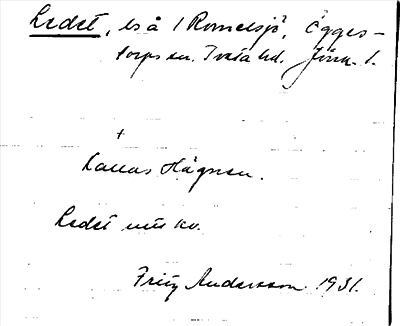 Ledet, bs å 1 Romelsjö, Ögges-
torps sn. Tveta hd. Jönk. l.
+
Kallas Hägnen.
Ledet
Fritz Andersson 1931.